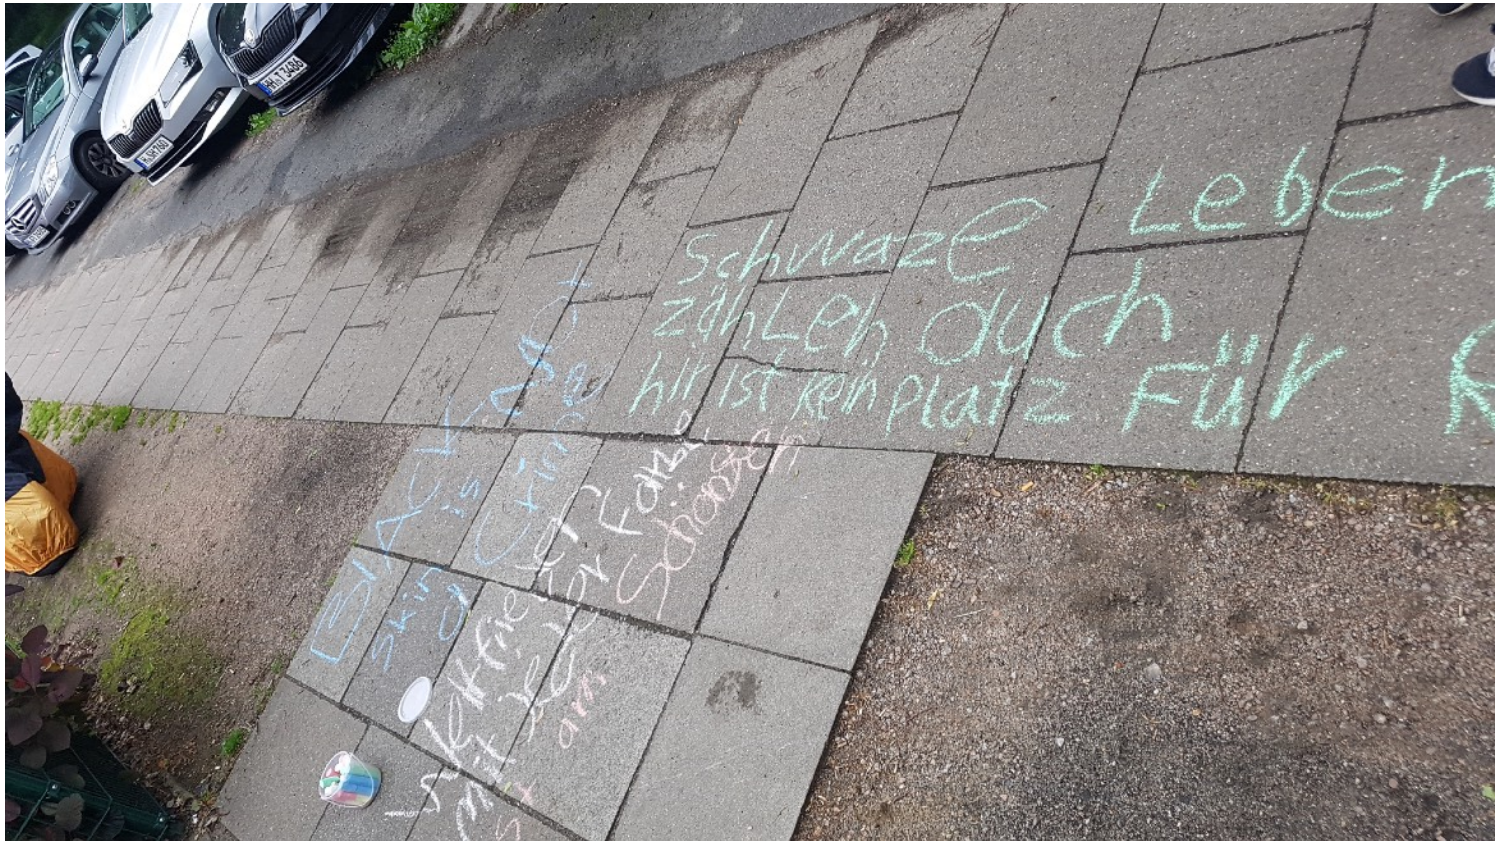 Schwaze Leben
zählen auch
hir ist kein platz Für R
BlACK
skin is Not
a Crime
mit jeder Farbe
ist am Schönsten
HH T 3486